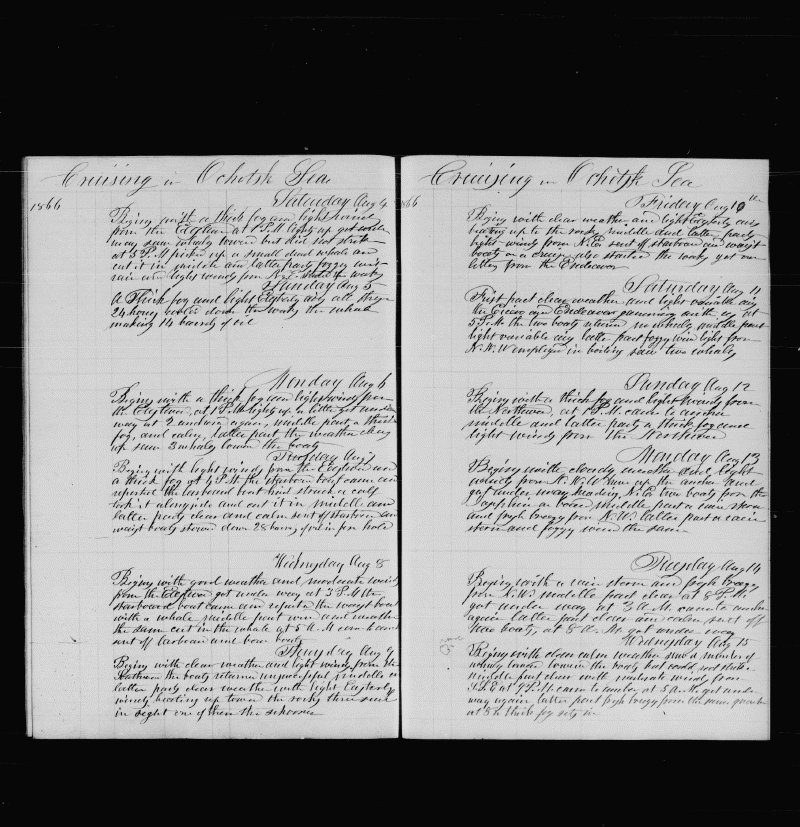 Cruising in Ochotsk Sea
1866
Saturday Aug 4
Begins with a thick fog and light wind
from the Eastern at 1 P M lights up got under
way saw whales lowerd but did not strike
at 3 P M picked up a small dead whale and
cut it in middle and latter parts foggy with
rain and light winds from N.E.
Sunday Aug 5
A Thick fog and light Easterly airs all these
24 hours boiled down the whale
making 14 barrels of oil
Monday Aug 6
Begins with a thick fog and light winds from
the Eastern, at 1 P M lights up a little got under
way at 2 anchord again, middle part a thick
fog, and calm, latter part the weather clears
up saw 3 whales lowerd the boats
Tuesday Aug 7
Begins with light winds from the Eastern and
a thick fog at 4 P M the starbord boat came and
reported the larboard boat had struck a calf
took it alongside and cut it in middle and
latter parts clear and calm sent off starbord and
waist boats stowed down 28 barrels of oil in fore hole
Wednsday Aug 8
Begins with good weather and moderate winds
from the Eastern got under way at 3 P M the
starboard boat came and reported the waist boat
with a whale middle part wind and weather
the same cut in the whale at 5 A. M
sent off larboard and bow boats
Thursday Aug 9
Begins with clear weather and light winds from the
Northern the boats returned unsuccessful middle and
latter parts clear weather with light Easterly
winds beating up toward the rocks three sail
in sight one of them the schooner
Cruising in Ochotsk Sea
1866
Friday Aug 10th
Begins with clear weather and light Easterly airs
beating up to the rocks middle and latter parts
light winds from N.E. sent off starbord and waist
boats on a cruise also started the works got our
letters from the Endeavor
Saturday Aug 11
First part clear weather, and light variable airs
the Cicero and Endeavor gamming with us at
5 P.M. the two boats returnd no whales, middle part
light variable airs latter part foggy wind light from
N.N.W employed in boiling saw two whales
Sunday Aug 12
Begins with a thick fog and light winds from
the Northern, at 1 P.M. came to anchor
middle and latter parts a thick fog and
light winds from the Northern
Monday Aug 13
Begins with cloudy weather and light
winds from N.N.W. hove up the anchor and
got under way heading N.E. two boats from the
Josephine on board middle part a rain storm
and fresh breeze from N.W. latter part a rain
storm and foggy wind the same
Tuesday Aug 14
Begins with a rain storm and fresh breeze
from N.W. middle part clear at 8 P.M.
got under way at 3 A.M. came to anchor
again latter part clear and calm sent off
two boats, at 8 A.M. got under way
Wednesday Aug 15
Begins with clear calm weather saw a number of
whales lowerd the boats but could not strike
middle part clear with moderate winds from
S.S.E at 9 P.M came to anchor at 5 A.M. got under
way again latter part fresh breeze from the same quarter
at 8 h thick fog sets in